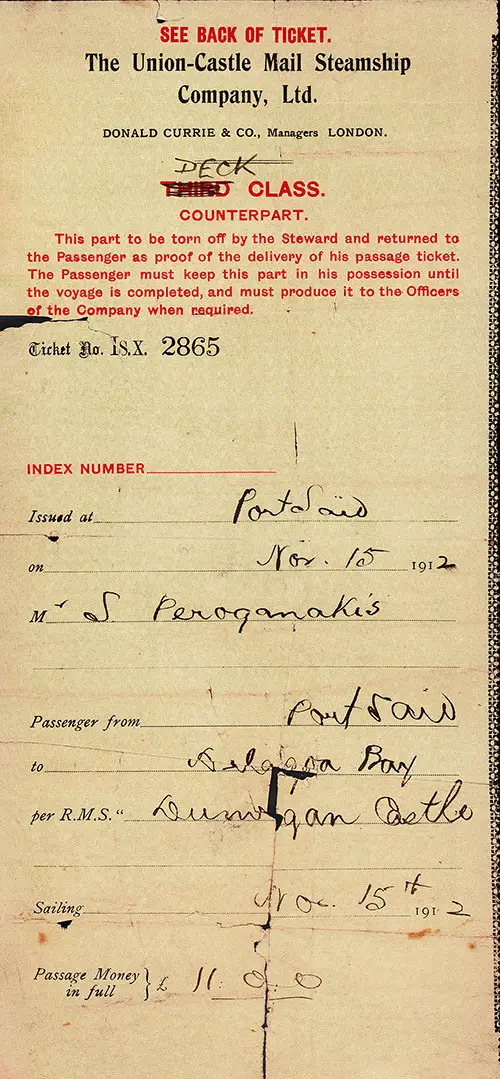 SEE BACK OF TICKET.
The Union-Castle Mail Steamship
Company, Ltd.
DONALD CURRIE & CO., Managers LONDON.
DECK
THIRD CLASS.
COUNTERPART.
This part to be torn off by the Steward and returned to
the Passenger as proof of the delivery of his passage ticket.
The Passenger must keep this part in his possession until
the voyage is completed, and must produce it to the Officers
of the Company when required.
Ticket No. 18.X. 2865
INDEX NUMBER
Issued at Port Said
on Nov. 15 1912
Mr S. Peroganakis
Passenger from Port Said
to Delagoa Bay
per R.M.S. " Dunvegan Castle
Sailing Nov. 15th 1912
Passage Money
in full } £ 11. 0. 0